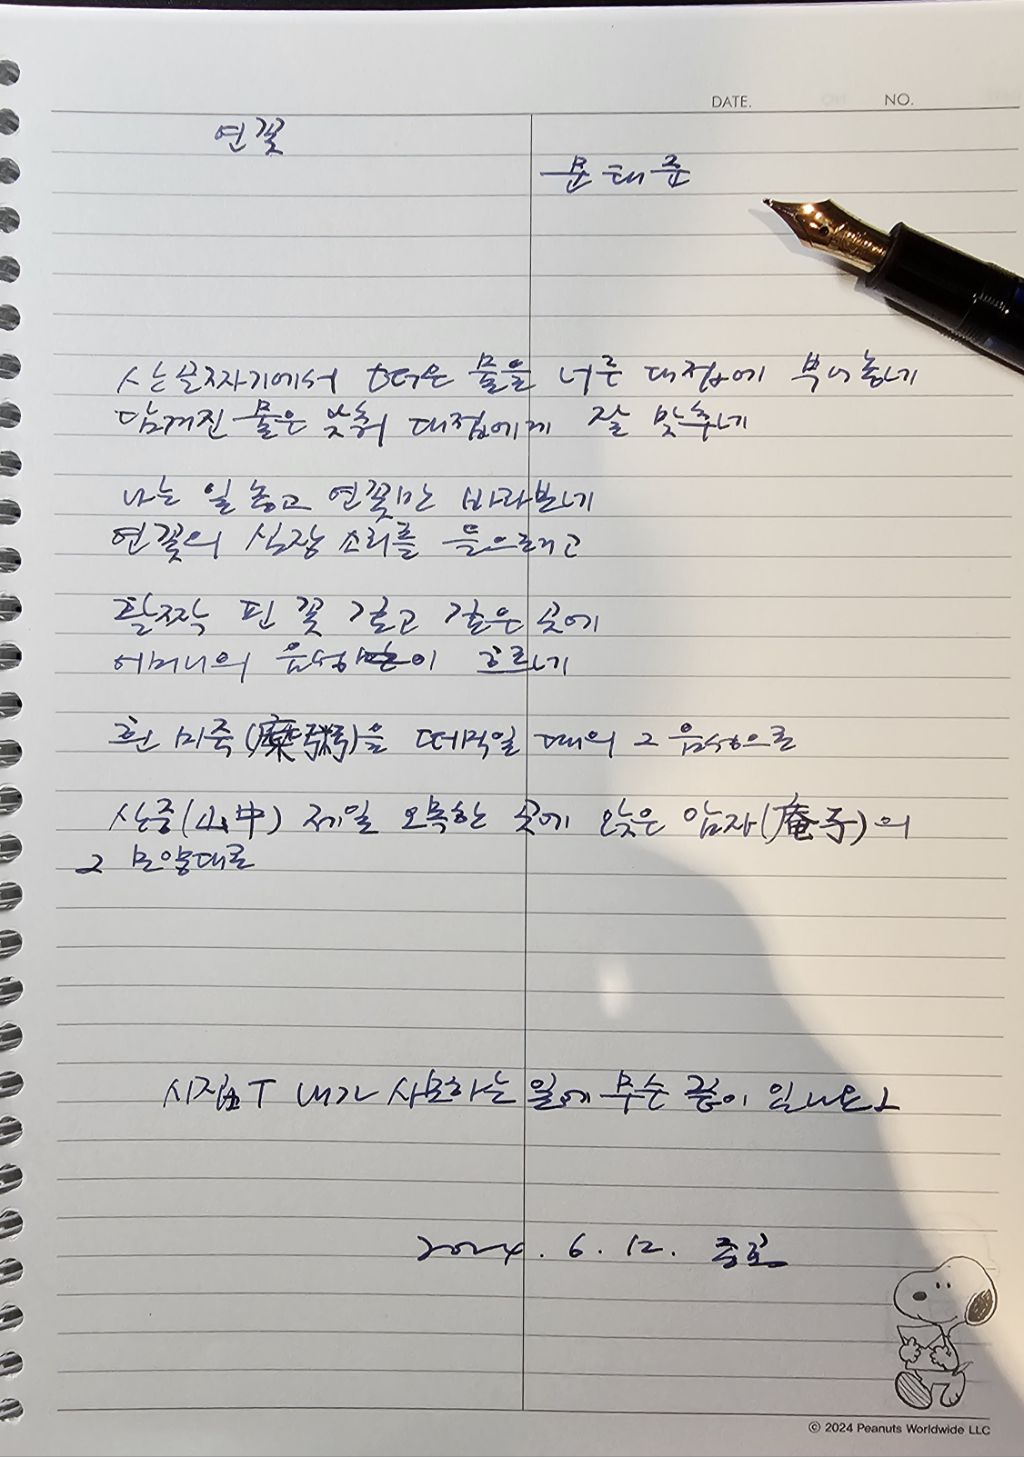 DATE. NO.
연꽃
문태준
산골짜기에서 떠온 물을 너른 대접에 부어놓네
담겨진 물은 낮춰 대접에게 잘 맞추네
나는 일 놓고 연꽃만 바라보네
연꽃의 심장 소리를 들으려고
활짝 핀 꽃 깊고 깊은 곳에
어머니의 음성이 흐르네
흰 미죽(糜粥)을 떠먹일 때의 그 음성으로
산중(山中) 제일 오목한 곳에 앉은 암자(庵子)의
그 모양대로
시집 「내가 사모하는 일에 무슨 끝이 있나요」
2024. 6. 12.
© 2024 Peanuts Worldwide LLC